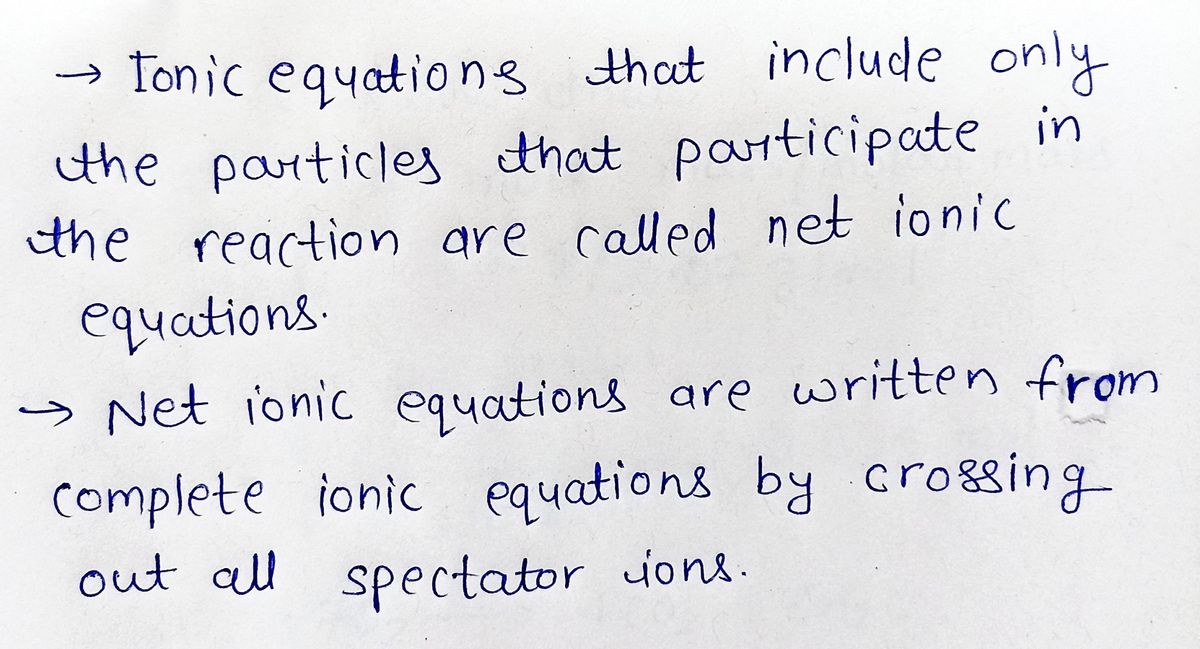 → Ionic equations that include only
the particles that participate in
the reaction are called net ionic
equations.
→ Net ionic equations are written from
complete ionic equations by crossing
out all spectator ions.